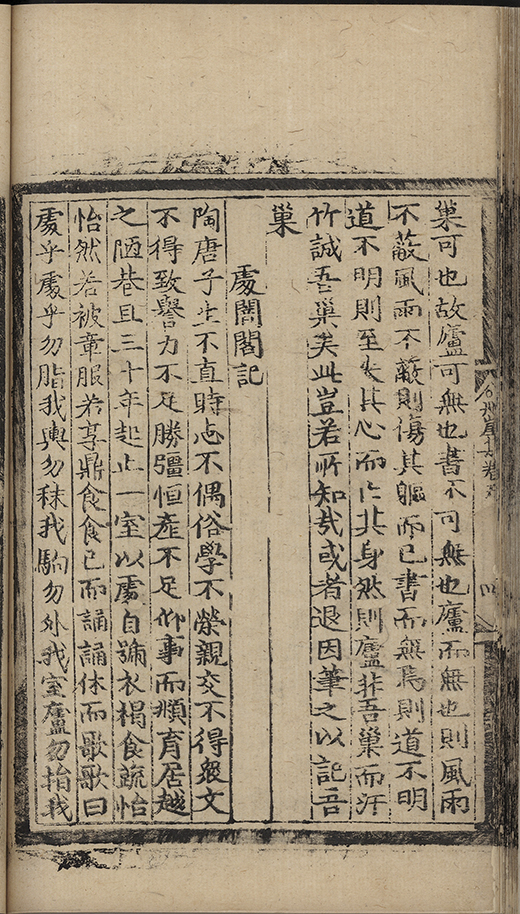 巢可也故廬可無也書不可無也廬而無也則風雨
不蔽風雨不蔽則傷其軀而已書而無焉則道不明
道不明則至失其心而亡其身然則廬非吾巢而汗
竹誠吾巢矣此豈若所知哉或者退因筆之以記吾
巢
處闇閣記
陶唐子生不直時志不偶俗學不榮親交不得叕文
不得致譽力不足勝彊恒產不足仰事而頫育居越
之陋巷且三十年起止一室以處自號衣褐食蔬怡
怡然若被章服若享鼎食食已而誦誦休而歌歌曰
處乎處乎勿脂我輿勿秣我駒勿外我室廬勿掐我